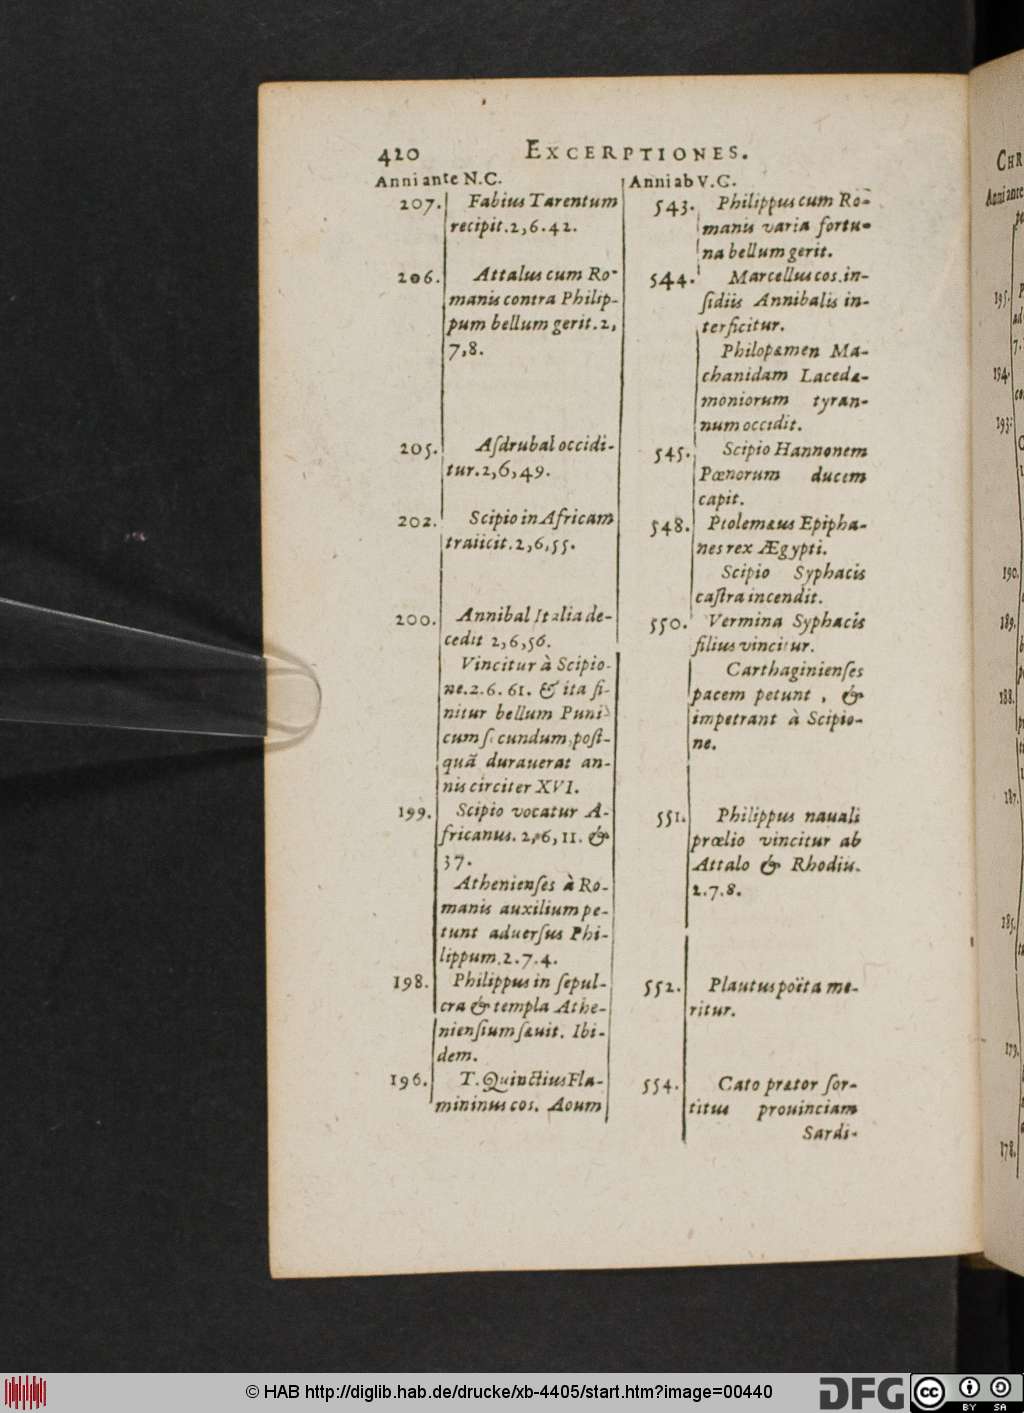 420 EXCERPTIONES.
Anni ante N.C.
207. Fabius Tarentum
recipit.2,6.42.
206. Attalus cum Ro-
manis contra Philip-
pum bellum gerit.2,
7,8.
205. Aſdrubal occidi-
tur.2,6,49.
202. Scipio in Africam
traiicit.2,6,55.
200. Annibal Italia de-
cedit 2,6,56.
Vincitur à Scipio-
ne.2.6.61. & ita fi-
nitur bellum Puni-
cum ſecundum, poſt-
quā durauerat an-
nis circiter XVI.
199. Scipio vocatur A-
fricanus.2,6,11. &
37.
Athenienſes à Ro-
manis auxilium pe-
tunt aduerſus Phi-
lippum.2.7.4.
198. Philippus in ſepul-
cra & templa Athe-
nienſium ſæuit. Ibi-
dem.
196. T. Quinctius Fla-
mininus cos. Aoum
Anni ab V.C.
543. Philippus cum Ro-
manis varia fortu-
na bellum gerit.
544. Marcellus cos. in-
ſidiis Annibalis in-
terficitur.
Philopæmen Ma-
chanidam Lacedæ-
moniorum tyran-
num occidit.
545. Scipio Hannonem
Pœnorum ducem
capit.
548. Ptolemæus Epipha-
nes rex Ægypti.
Scipio Syphacis
caſtra incendit.
550. Vermina Syphacis
filius vincitur.
Carthaginienſes
pacem petunt, &
impetrant à Scipio-
ne.
551. Philippus nauali
prœlio vincitur ab
Attalo & Rhodiis.
2.7.8.
552. Plautus poëta mo-
ritur.
554. Cato prætor ſor-
titus prouinciam
Sardi-
CHR
Anni ante
195.
194.
193.
190.
189.
188.
187.
185.
179.
178.
© HAB http://diglib.hab.de/drucke/xb-4405/start.htm?image=00440
DFG
cc
BY SA